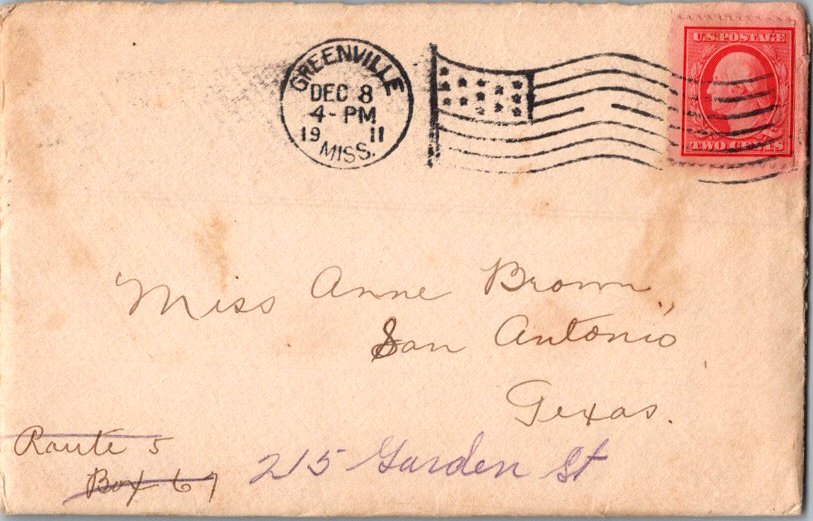 GREENVILLE
DEC 8
4-PM
19 11
MISS.
U.S. POSTAGE
TWO CENTS
Miss Anne Brown,
San Antonio
Texas.
Route 5
Box 67
215 Garden St